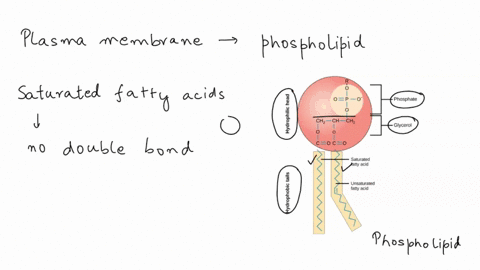 Plasma membrane → phospholipid
Saturated fatty acids
↓
no double bond
Hydrophilic head
Phosphate
Glycerol
O
O=P–O⁻
O
CH₂–CH–CH₂
O O
C=O C=O
Hydrophobic tails
Saturated fatty acid
Unsaturated fatty acid
Phospholipid